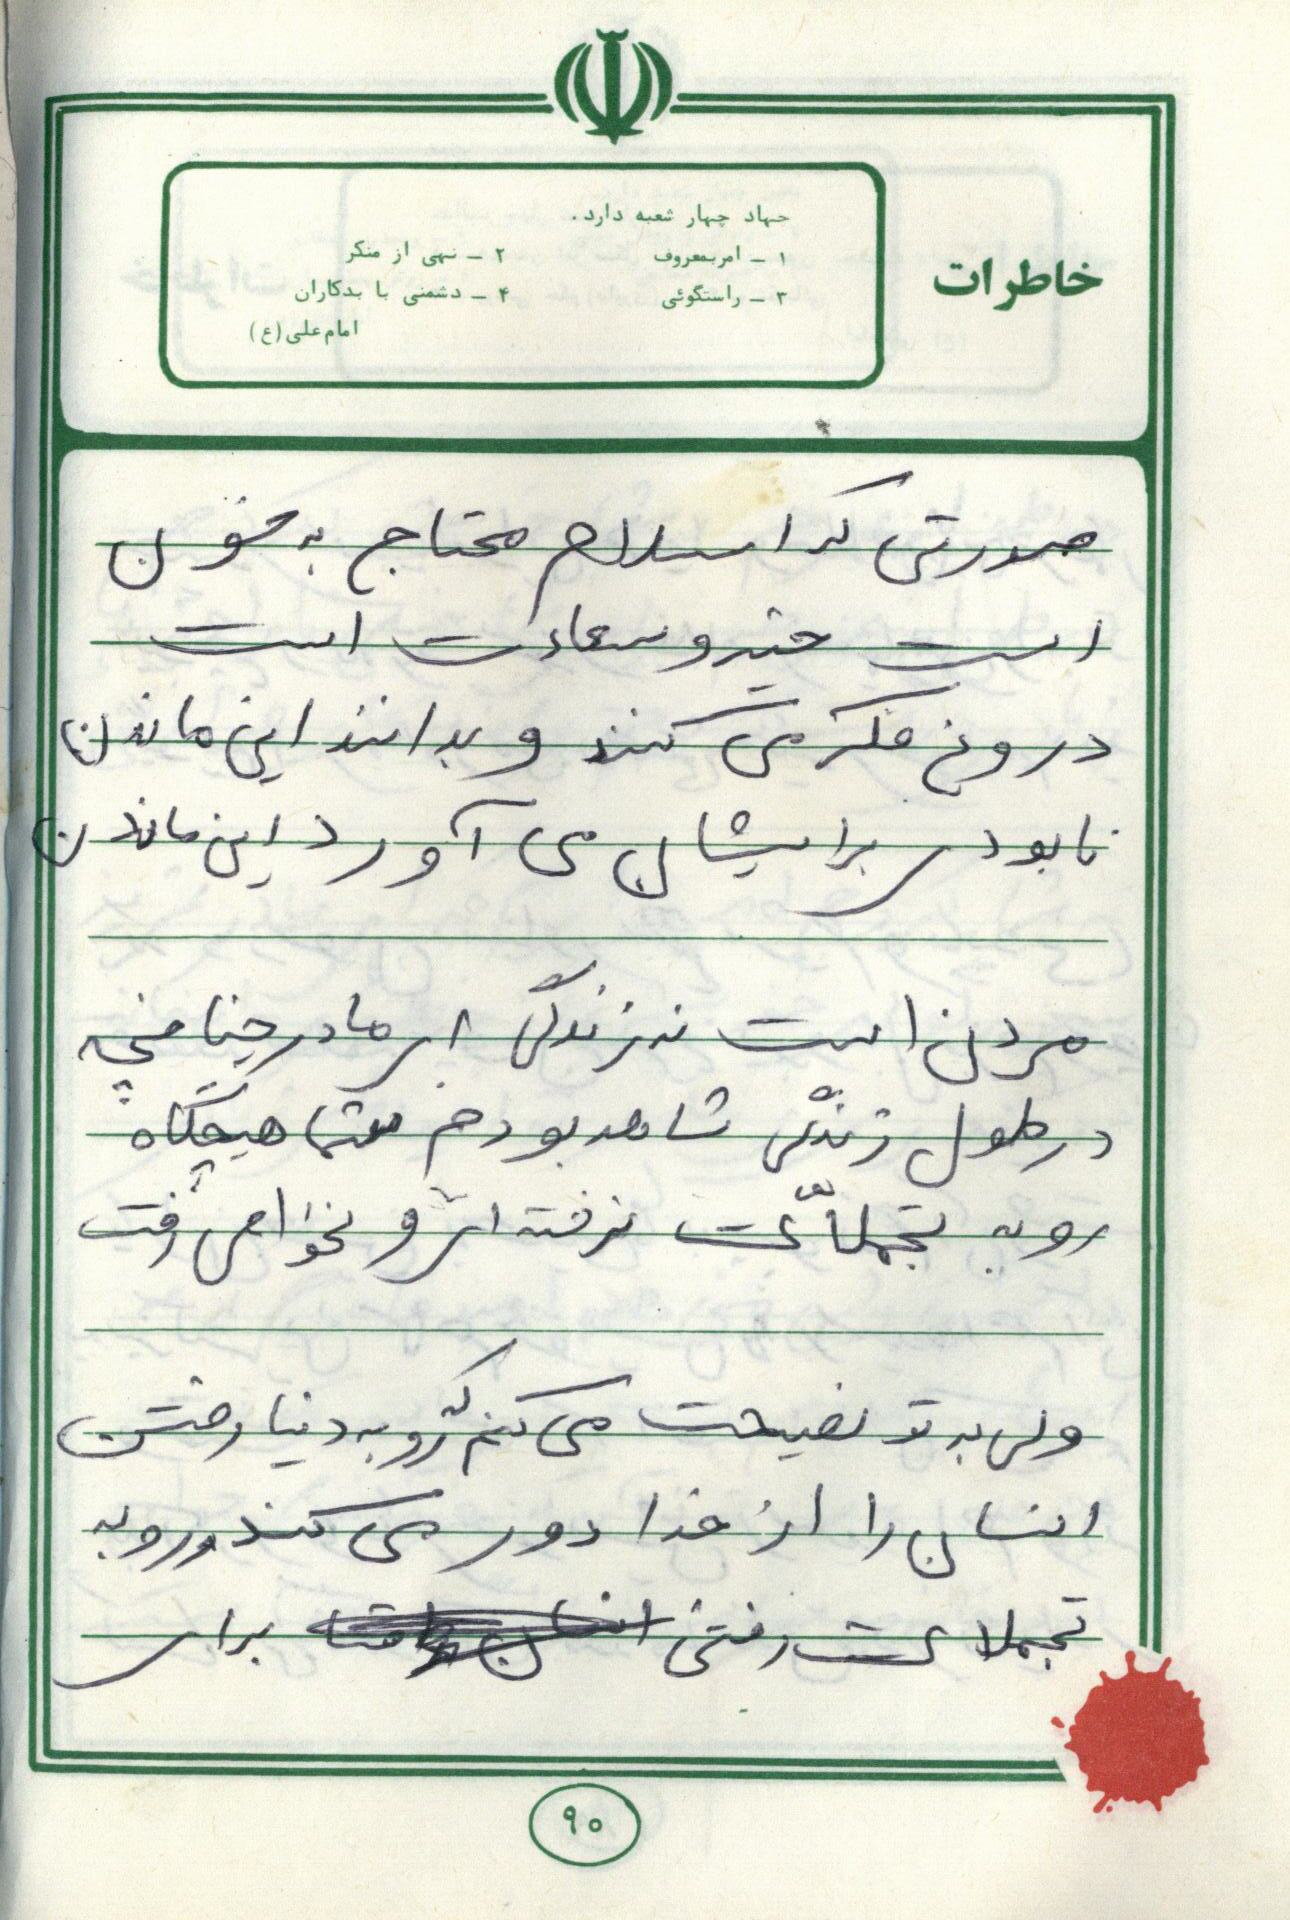 خاطرات
جهاد چهار شعبه دارد.
۱ - امربمعروف ۲ - نهی از منکر
۳ - راستگوئی ۴ - دشمنی با بدکاران
امام علی (ع)
صورتی که اسلام محتاج به خون
است خیر و سعادت است
دروغ فکر می کنند و بدانند این ماندن
نابودی برایشان می آورد این ماندن
مردن است نه زندگی ای مادر چنانچه
در طول زندگی شاهد بودم شما هیچگاه
رو به تجملات نرفته اید و نخواهی رفت
ولی به تو نصیحت می کنم که رو به دنیا رفتن
انسان را از خدا دور می کند و رو به
تجملات رفتن برای
۹۰